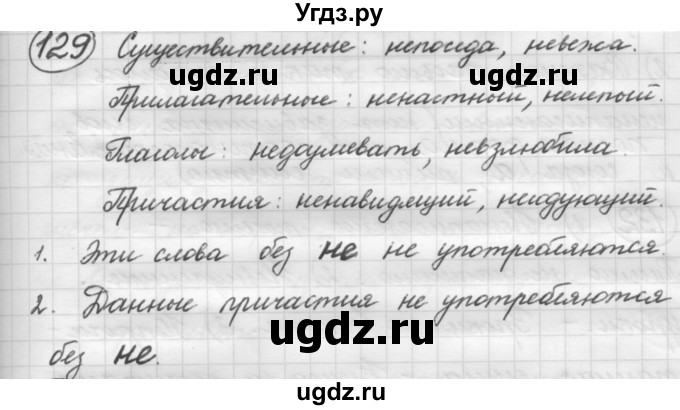 Угдз.ру
129 Существительные: непоседа, невежа.
ugdz.ru ugdz.ru
Прилагательные: ненастный, нелепый.
Глаголы: недоумевать, невзлюбила.
ugdz.ru ugdz.ru
Причастия: ненавидящий, негодующий.
1. Эти слова без не не употребляются.
ugdz.ru ugdz.ru
2. Данные причастия не употребляются
ugdz.ru
без не.
ugdz.ru